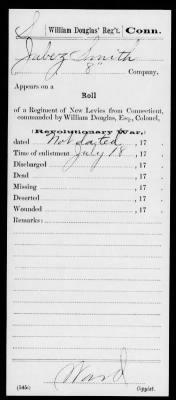 S | William Douglas' Reg't. | Conn.
Jabez Smith
8" Company.
Appears on a
Roll
of a Regiment of New Levies from Connecticut,
commanded by William Douglas, Esq., Colonel,
(Revolutionary War,)
dated Not dated, 17
Time of enlistment July 18, 17
Discharged , 17
Dead , 17
Missing , 17
Deserted , 17
Wounded , 17
Remarks:
Ward
(545c) Copyist.